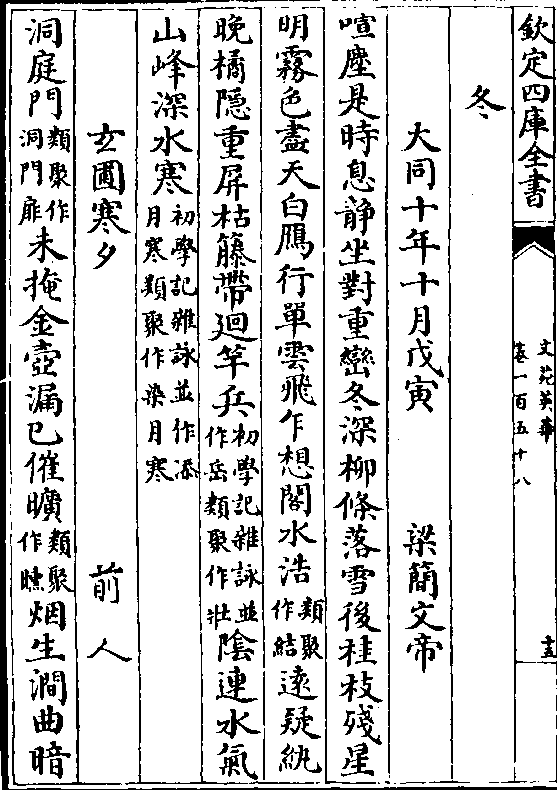 欽定四庫全書
文苑英華
卷一百五十八
十五
冬
大同十年十月戊寅 梁簡文帝
喧塵是時息静坐對重巒冬深柳條落雪後桂枝殘星
明霧色盡天白鴈行單雲飛乍想閣水浩類聚作結逺疑紈
晚橘隠重屏枯籐帶廻竿兵初學記雜詠並作岳類聚作壯陰連水氣
山峰深水寒初學記雜詠並作添月寒類聚作染月寒
玄圃寒夕 前人
洞庭門類聚作洞門扉未掩金壺漏已催曠類聚作曛烟生澗曲暗